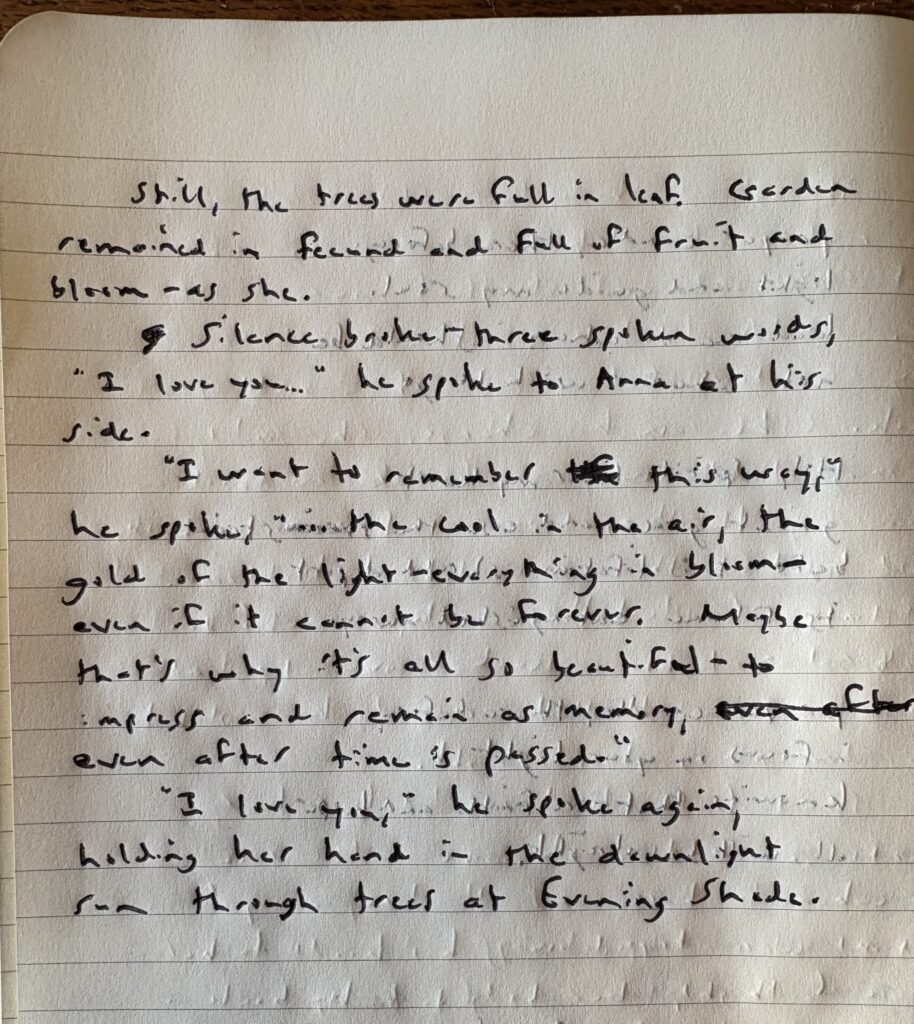 Still, the trees were full in leaf. Garden
remained in fecund and full of fruit and
bloom - as she.
Silence broke - three spoken words,
"I love you..." he spoke to Anna at his
side.
"I want to remember this way,"
he spoke, "... the cool in the air, the
gold of the light - everything in bloom -
even if it cannot be forever. Maybe
that's why it's all so beautiful - to
impress and remain as memory, even after
even after time is passed."
"I love you," he spoke again,
holding her hand in the dawnlight
sun through trees at Evening Shade.